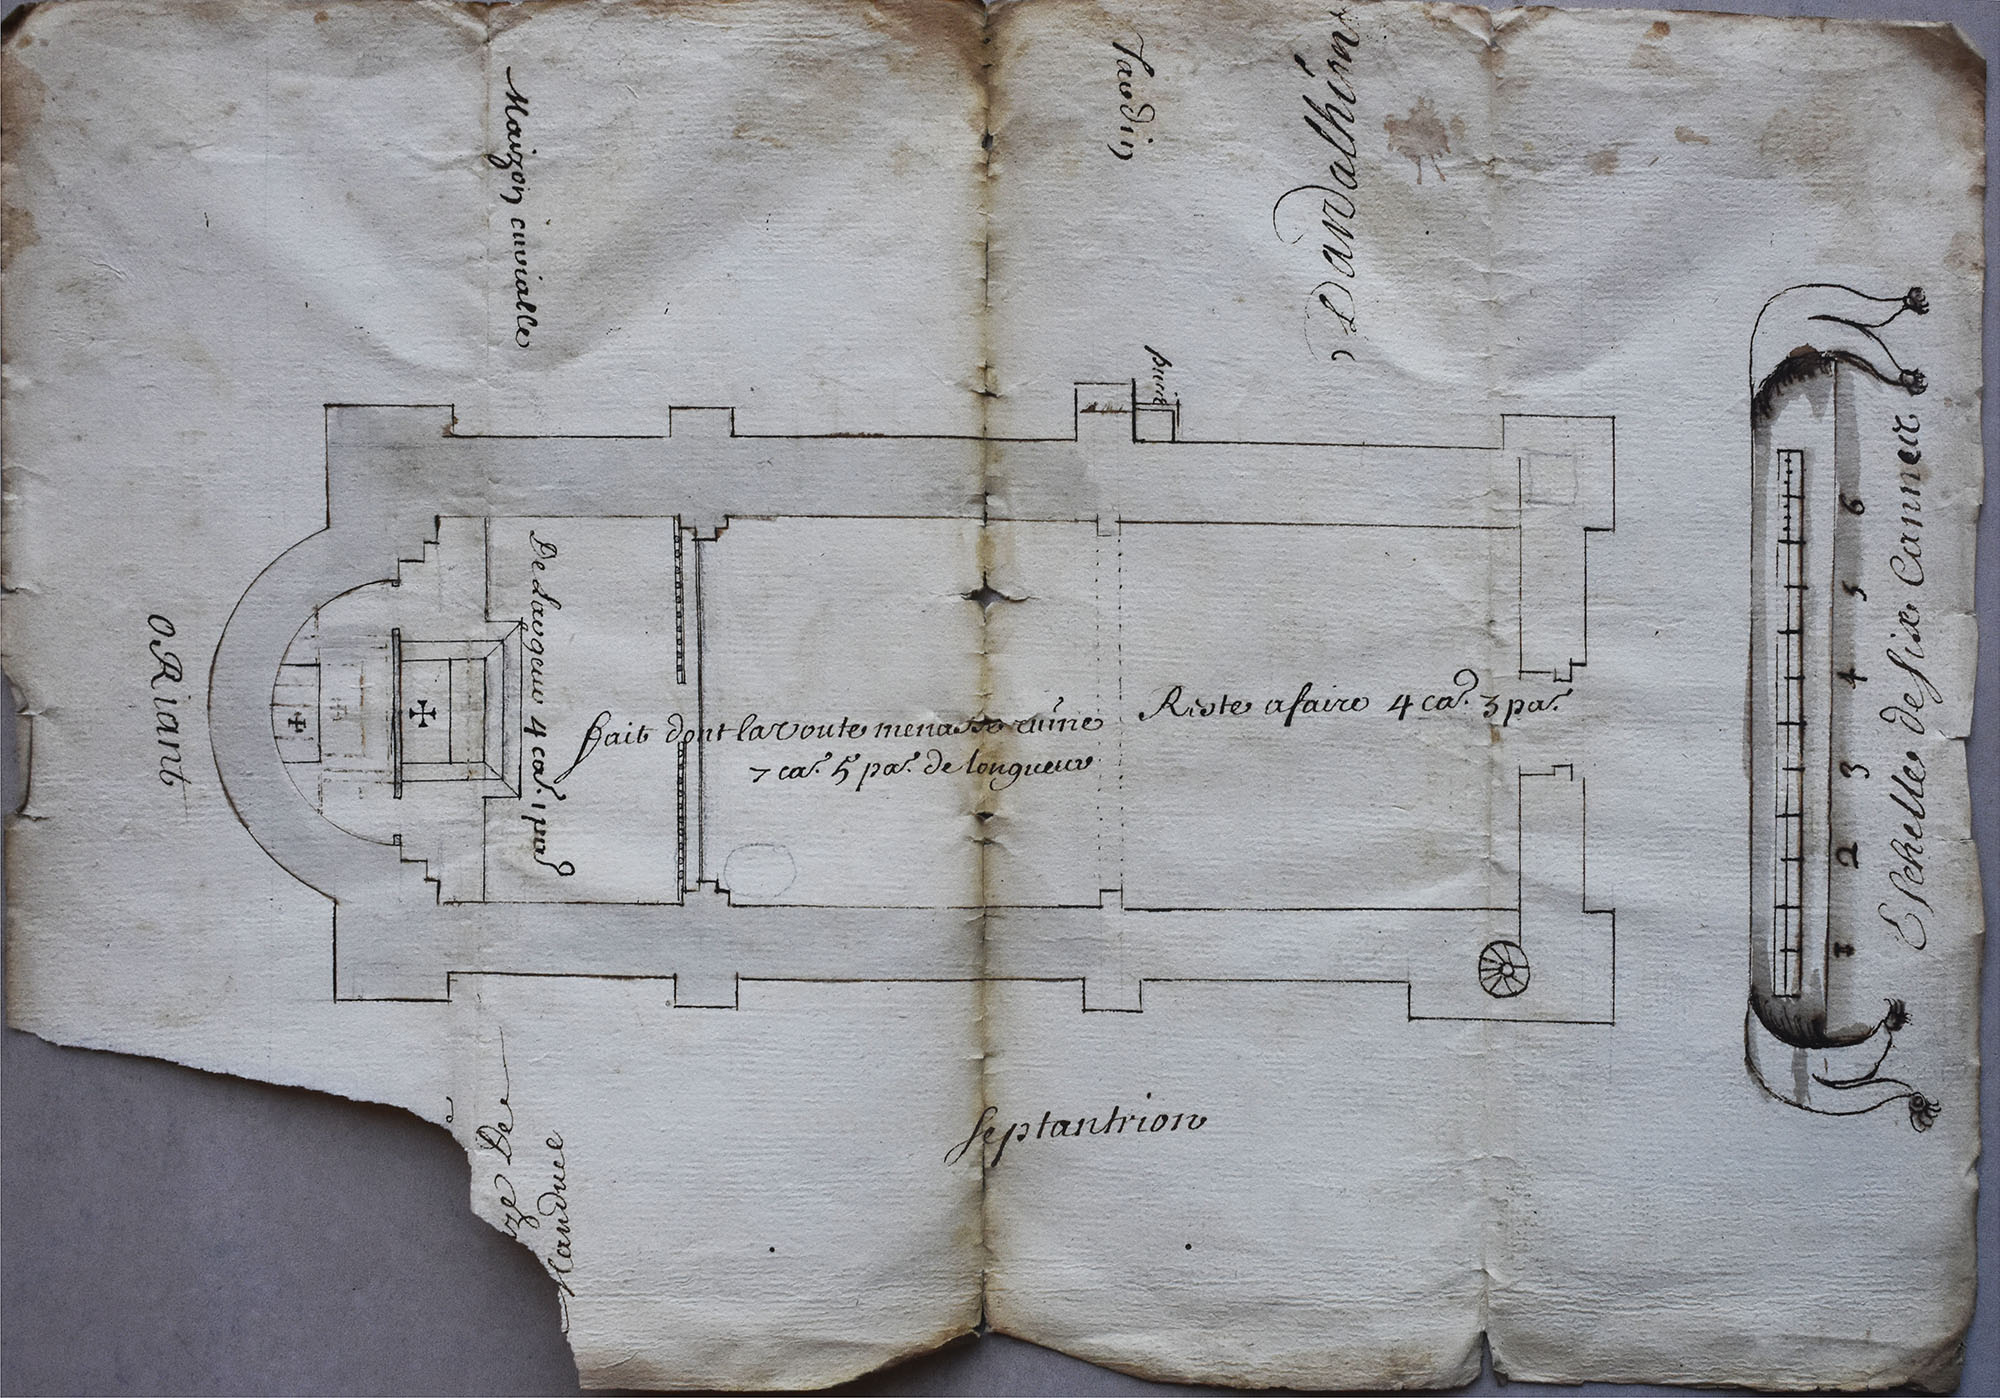 Maizon cuvialle
Jardin
Dardalhion
puits
ORiant
De Largeur 4 ca. 1 pa
fait dont la voute menasse ruine
7 ca. 5 pa. de longueur
Reste a faire 4 ca. 3 pa.
Septantrion
De
Echelle de Six Cannes
1 2 3 4 5 6